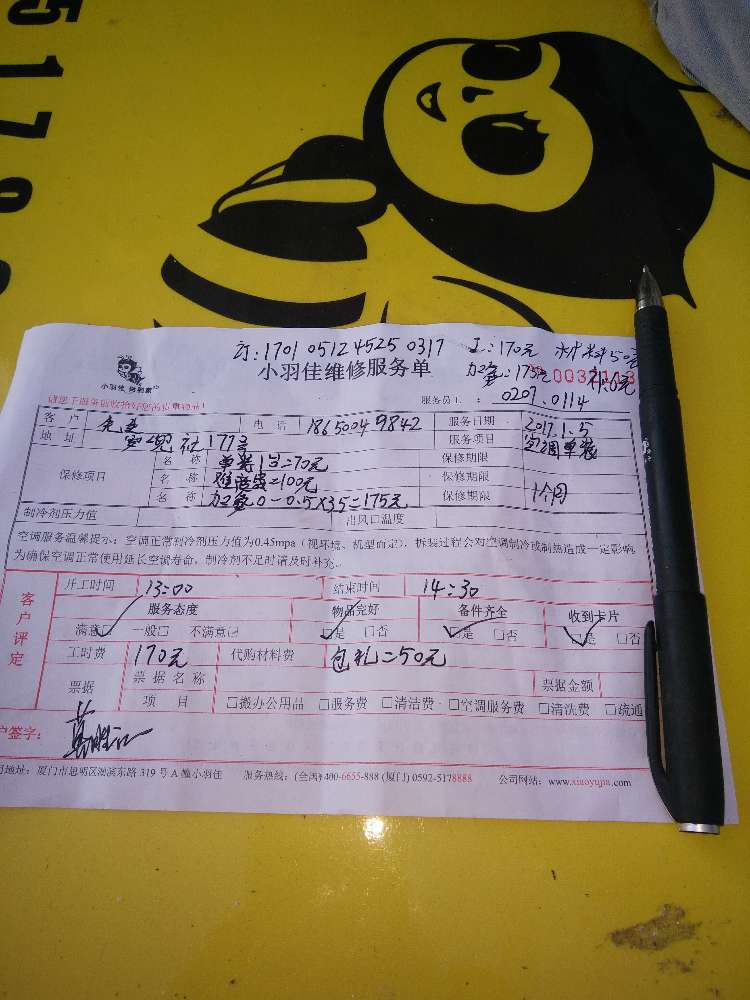 5178
订:1701 0512 4525 0317 工:170元 材料50元
小羽佳维修服务单
加氟:175元
小羽佳
服务员工: 0207.0114
客户 电话 18650049842 服务日期 2017.1.5
地址 社177号 服务项目 空调单装
保修项目 名称 单装1台=70元 保修期限
名称 难度费=100元 保修期限
名称 加氟0-0.5×35=175元 保修期限 1个月
制冷剂压力值 出风口温度
空调服务温馨提示:空调正常制冷剂压力值为0.45mpa(视环境、机型而定),拆装过程会对空调制冷或制热造成一定影响
为确保空调正常使用延长空调寿命,制冷剂不足时请及时补充。
客户评定
开工时间 13:00 结束时间 14:30
服务态度 物品完好 备件齐全 收到卡片
满意□ 一般□ 不满意□ □是 □否 □是 □否 □是 □否
工时费 170元 代购材料费 包扎=50元
票据 票据名称 票据金额
项目 □搬办公用品 □服务费 □清洁费 □空调服务费 □清洗费 □疏通
户签字:
司地址:厦门市思明区湖滨东路319号A幢小羽佳 服务热线:(全国)400-6655-888 (厦门) 0592-5178888 公司网站:www.xiaoyujia.com